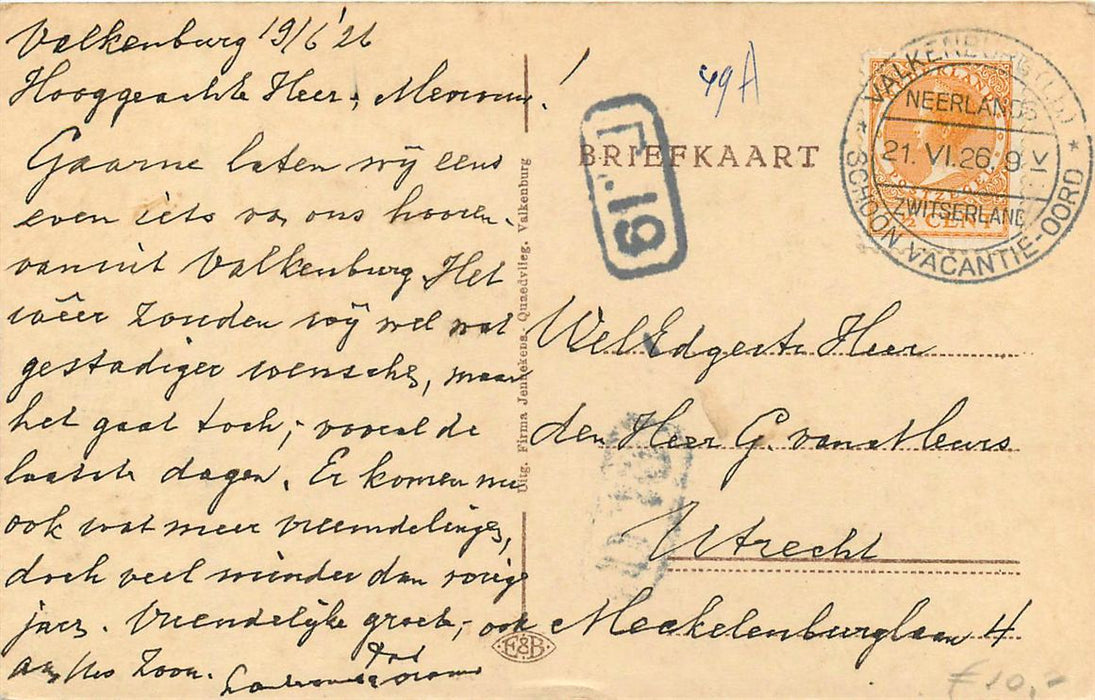 Valkenburg 19/6 '26
Hooggeachte Heer, Mevrouw!
Gaarne laten wij eens
even iets van ons hooren,
vanuit Valkenburg. Het
wêer zouden wij wel wat
gestadiger wenschen, maar
het gaat toch, vooral de
laatste dagen. Er komen nu
ook wat meer vreemdelingen,
doch veel minder dan vorig
jaar. Vriendelijke groeten, ook
aan Zoon.
Uitg. Firma Jennekens-Quaedvlieg. Valkenburg
E&B
49A
19
BRIEFKAART
VALKENBURG (Lb.)
NEERLANDS
21. VI. 26. 9 V
ZWITSERLAND
SCHOON VACANTIE-OORD
½ CENT
WelEdgestr Heer
den Heer G. van Meurs
Utrecht
Meckelenburglaan 4
£ 10.-